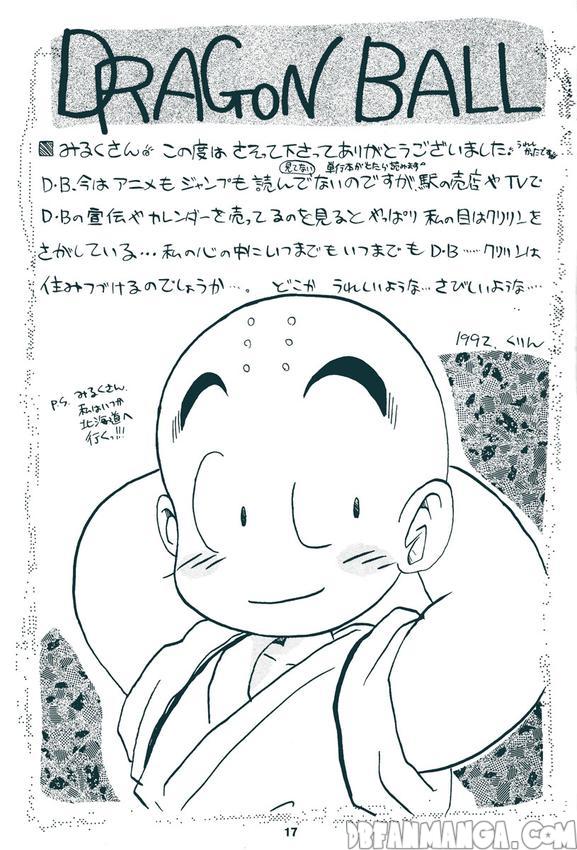 DRAGON BALL
みるくさん この度は さそって下さってありがとうございました。
見てない 単行本がでたら読みます。
D・B.今は アニメも ジャンプも 読んでないのですが、駅の売店や TVで
D・Bの宣伝や カレンダーを売ってるのを見ると やっぱり 私の目はクリリンを
さがしている…私の心の中にいつまでも いつまでも D・B……クリリンは
住みつづけるのでしょうか…。 どこか うれしいような…さびしいような…
1992. くりん
P.S. みるくさん。
私はいつか
北海道へ
行くっ!!!
17
DBFANMANGA.COM